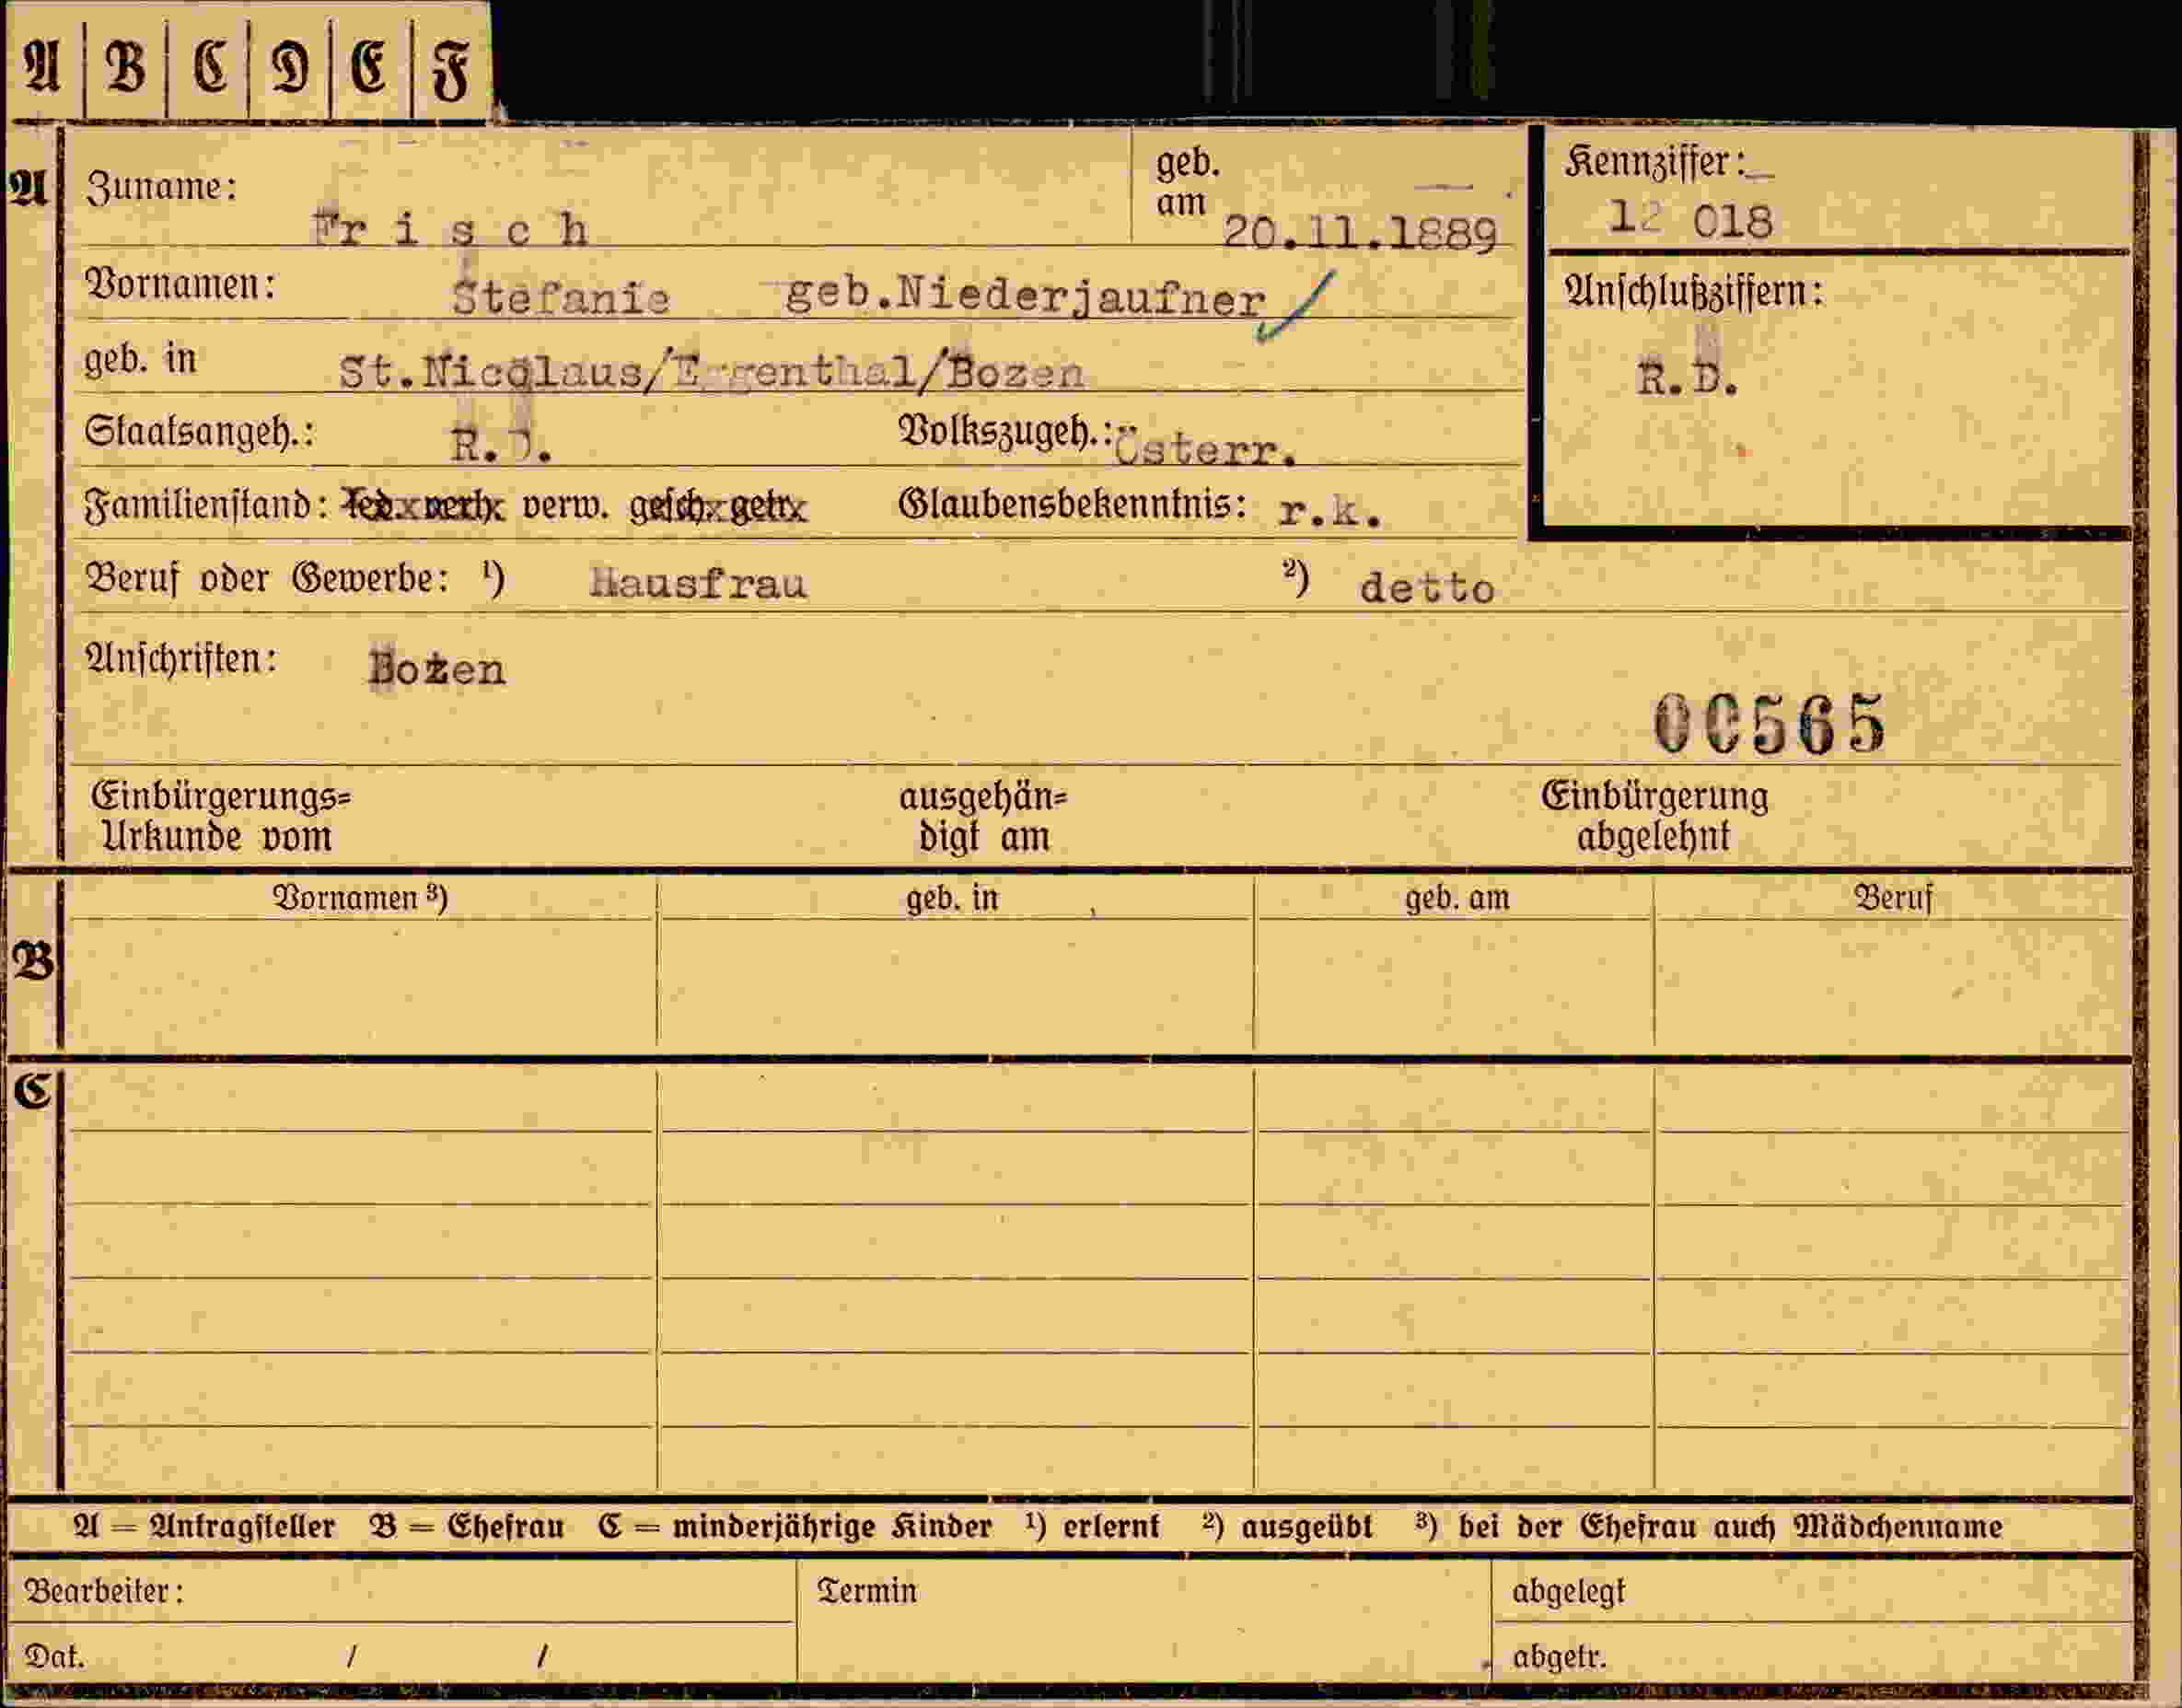 A B C D E F
A Zuname: Frisch geb. am 20.11.1889 Kennziffer: 12 018
Vornamen: Stefanie geb.Niederjaufner Anschlußziffern:
geb. in St.Nicolaus/Eggenthal/Bozen R.D.
Staatsangeh.: R.D. Volkszugeh.: Österr.
Familienstand: led. verh. verw. gesch. getr. Glaubensbekenntnis: r.k.
Beruf oder Gewerbe: ¹) Hausfrau ²) detto
Anschriften: Bozen
00565
Einbürgerungs= ausgehän= Einbürgerung
Urkunde vom digt am abgelehnt
Vornamen ³) geb. in geb. am Beruf
B
C
A = Antragsteller B = Ehefrau C = minderjährige Kinder ¹) erlernt ²) ausgeübt ³) bei der Ehefrau auch Mädchenname
Bearbeiter: Termin abgelegt
Dat. / / abgetr.